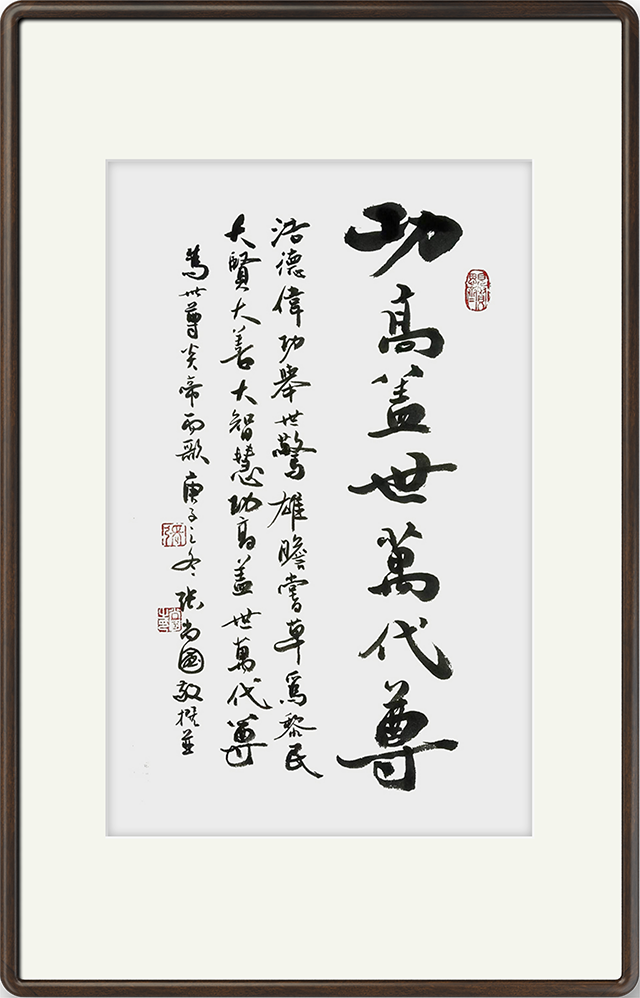 功高盖世萬代尊
浩德偉功舉世驚雄膽嘗草為黎民
大賢大善大智慧功高盖世萬代尊
為世尊炎帝而歌庚子之冬張尚國敬撰並